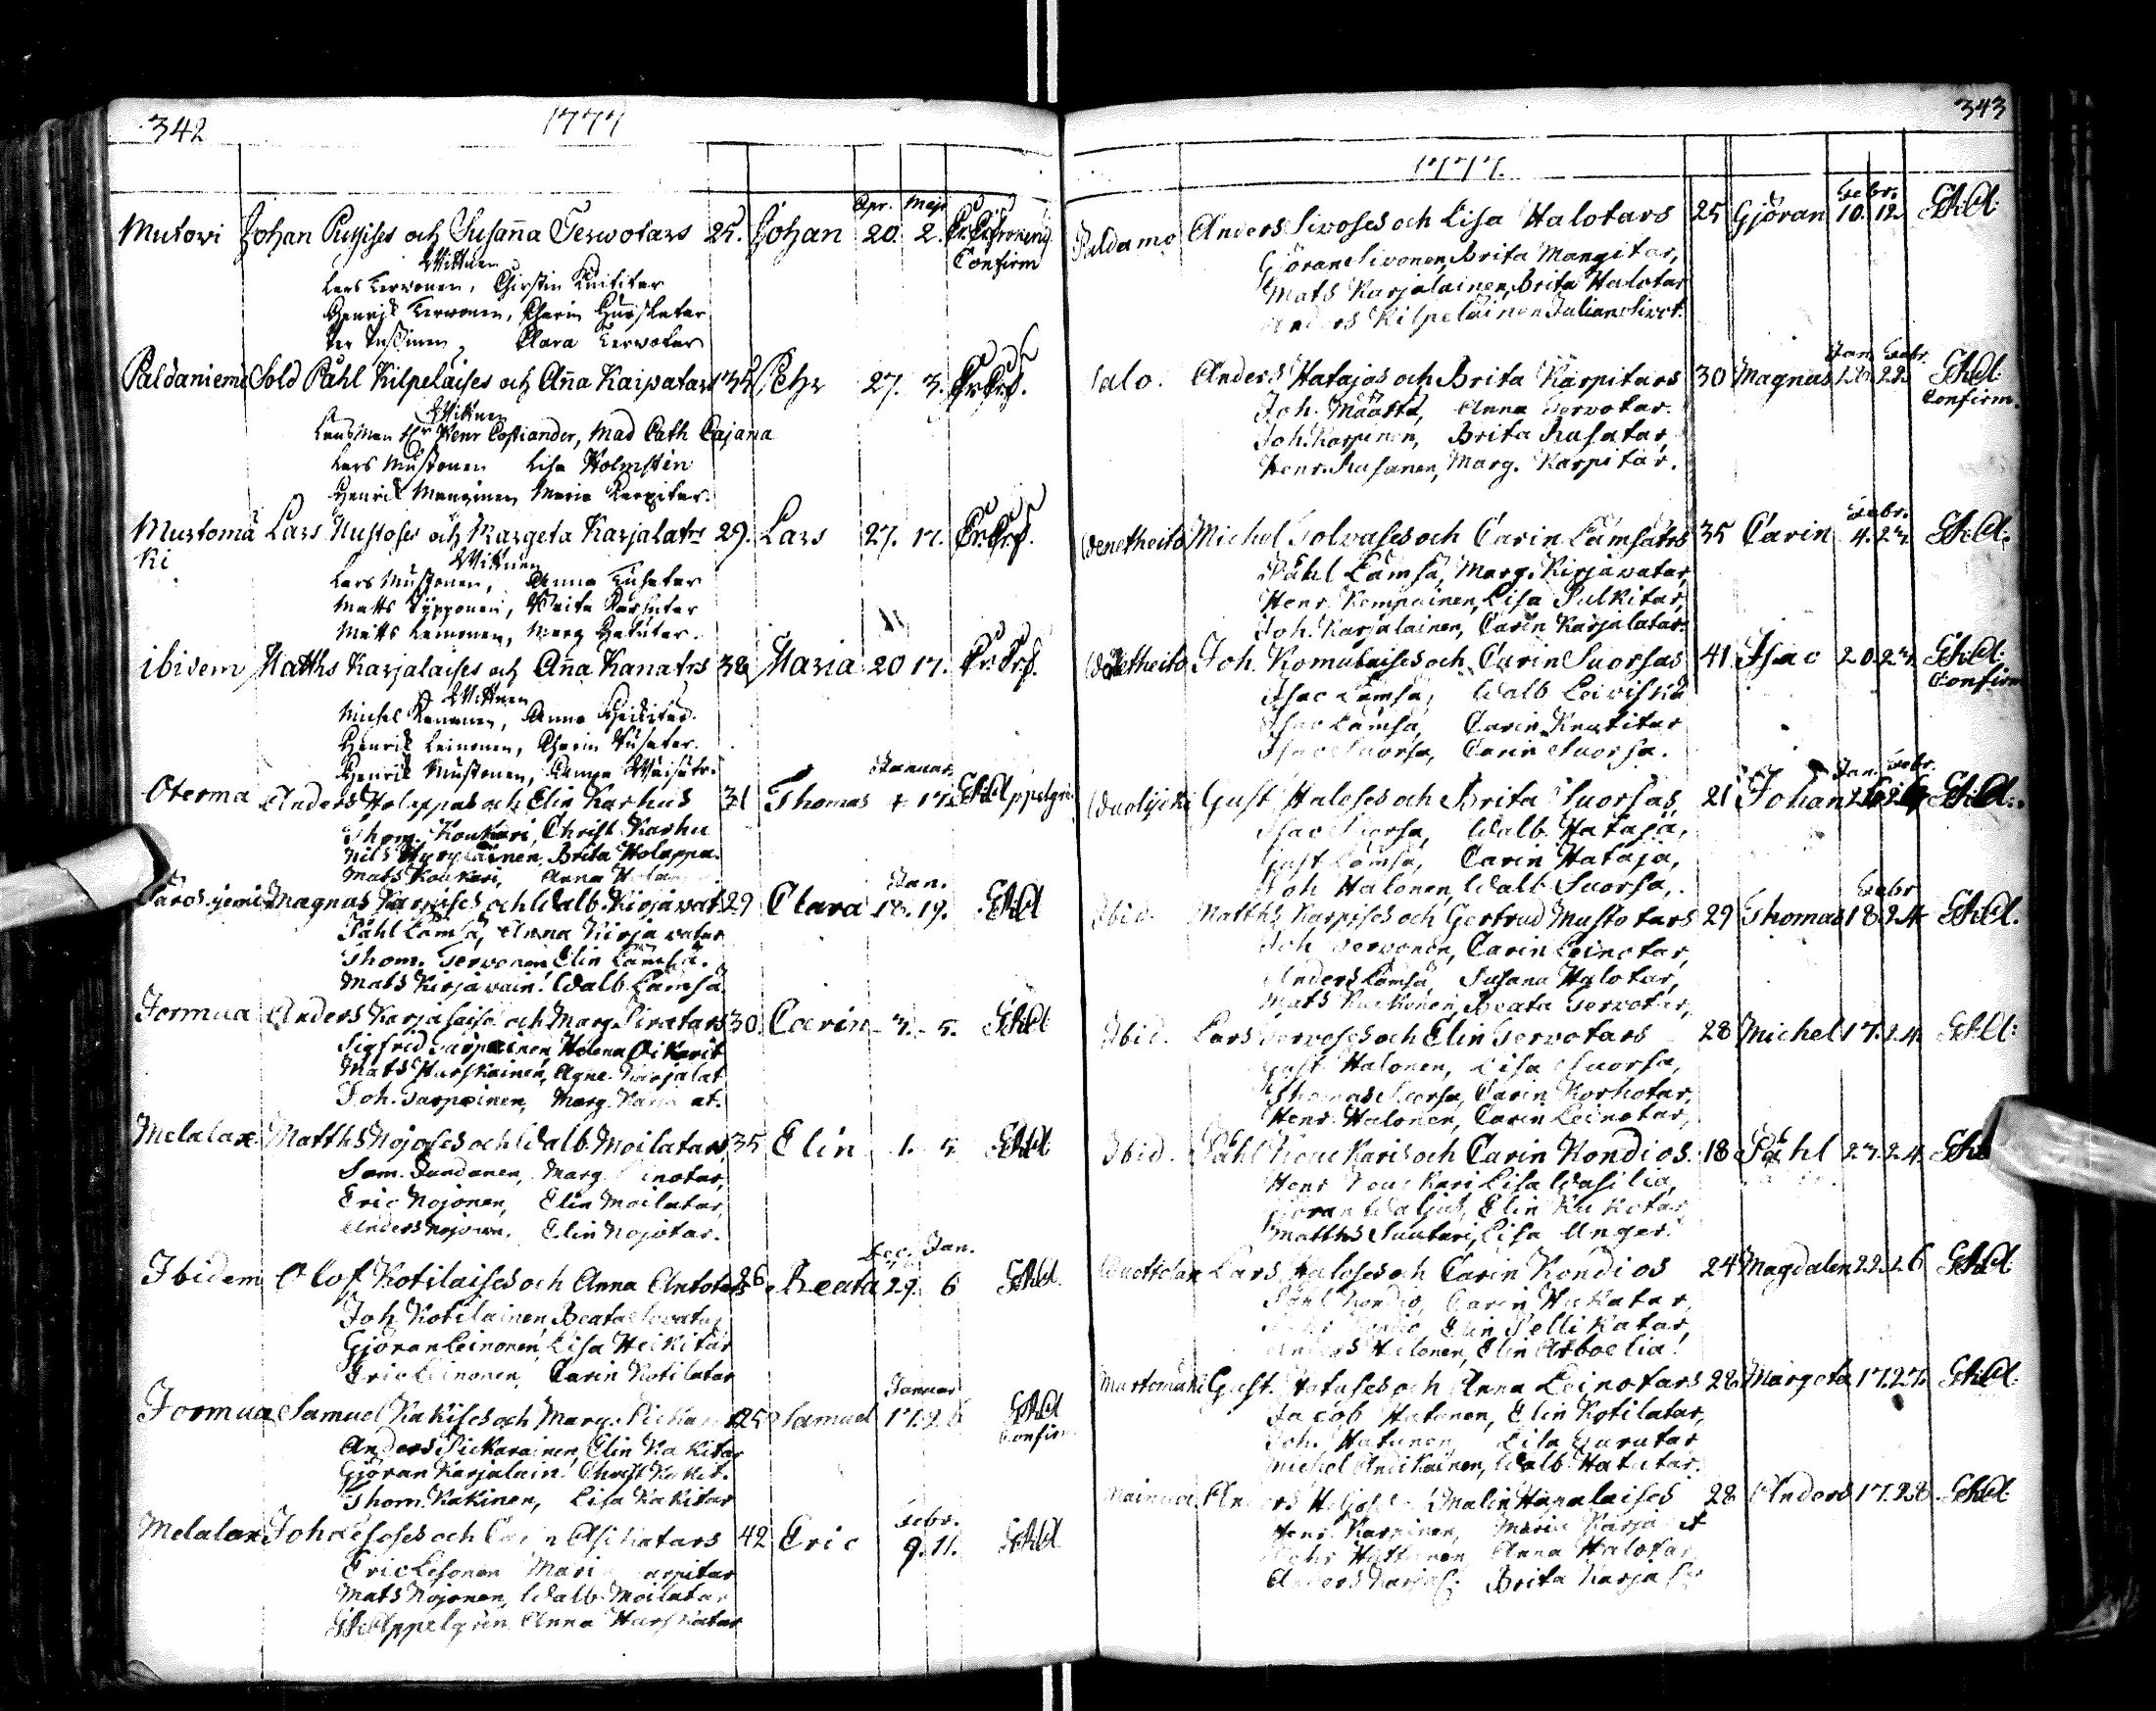 342
1777
Apr. Maji
Mutovi Johan Putisises och Susanna Terwotars 25. Johan 20. 2.
Confirm
Wittnen
Lars Terwonen, Christin Knititar
Henrik Terwonen, Charin Hurskatar
Per Clara Terwotar
Paldaniemi Sold Påhl Kilpelaises och Anna Kaipatars 35 Pehr 27. 3.
Wittnen
Länsman Hr Henr Costiander, Mad Cath Cajana
Lars Mustonen Lisa Holmstin
Henrik Manginen Maria Karpitar.
Murtomä Lars Mustoses och Margeta Karjalatrs 29. Lars 27. 17.
ki
Wittnen
Lars Mustonen, Anna
Matts Brita
Matts Leinonen, Marg Hatutar.
ibidem Matths Karjalaises och Anna Kanatrs 38 Maria 20 17.
Wittnen
Michel Kananen, Anna Heikitar.
Henrik Leinonen, Charin
Henrik Mustonen, Anna
Januar.
Oterma Anders Holappas och Elin Karhus 31 Thomas + 17. Appelgren
Thom. Koukari, Christ. Karhu
Nils Hyryläinen, Brita Holappa.
Mats Koukari, Anna
Jan.
Magnus Karpises och Walb. Kirjavat. 29 Clara 18. 19. G.H.A
Påhl Lämsä, Anna Kirjavatar
Thom. Tervonen Elin Lämsä.
Mats Kirjavain! Walb. Lämsä
Jormua Anders Karjalaises och Marg. Piratars 30. Carin 3. 5. G.H.A
Sigfrid Tarpainen, Helena Pikarit
Mats Hurskainen, Agne. Karjalat
Joh. Tarpainen, Marg.
Melalax. Matths Nojoses och Walb. Moilatars 35 Elin 1. 5. G.H.A
Sam. Tandanen, Marg.
Eric Nojonen, Elin Moilatar,
Anders Nojonen, Elin Nojotar.
Dec. Jan.
Ibidem Olof Kotilaises och Anna Antotars 26 Beata 29. 6 G.H.A
Joh. Kotilainen, Beata
Gjöran Leinonen, Lisa Heikitar
Eric Leinonen, Carin Kotilatar
Januar
Jormua Samuel Kakises och Marg. 25 Samuel 17. 26 G.H.A
Confirm.
Anders Pickarainen, Elin Kakitar
Gjöran Karjalain! Christ Kakit.
Thom. Kakinen, Lisa Kakitar
Febr.
Melalax Joh. Lesoses och Asikatars 42 Eric 9. 11. G.H.A
Eric Lesonen
Mats Nojonen, Walb. Moilatar
G.H. Appelgren Anna Hurskatar
343
1777.
Febr.
Paldamo Anders Sivoses och Lisa Halotars 25 Gjöran 10. 12. G.H.A.
Gjöran Sivonen, Brita Mangitar,
Mats Karjalainen, Brita Halotar
Anders Kilpeläinen Julian Sivot.
Jan. Febr.
Salo. Anders Hatajas och Brita Karpitars 30 Magnus 22. G.H.A.
Confirm.
Joh. Määttä, Anna Tervotar.
Joh. Karpinen, Brita Rusatar,
Henr. Rusanen, Marg. Karpitar.
Febr.
Wenetheito Michel Tolvases och Carin Lämsätrs 35 Carin 4. 23. G.H.A.
Påhl Lämsä, Marg. Kirjavatar,
Henr. Kempainen, Lisa Pulkitar,
Joh. Karjalainen, Carin Karjalatar.
Wenetheito Joh. Komulaises och Carin Suorsas 41 Isac 20. 23. G.H.A.
Confirm
Isac Lämsä, Walb. Leiviskä
Isac Lämsä, Carin Knutitar
Isac Suorsa, Carin Suorsa.
Jan. Febr.
Wuolijoki Gust. Haloses och Brita Suorsas 21 Johan G.H.A.
Isac Suorsa, Walb. Hataja,
Gust. Lämsä, Carin Hataja,
Joh. Halonen, Walb. Suorsa,
Febr
Ibid. Matths Karpises och Gertrud Mustotars 29 Thomas 18. 24 G.H.A.
Joh. Tervonen, Carin Leinotar,
Anders Lämsä, Susana Halotar,
Mats Kuckonen, Beata Tervotar,
Ibid. Lars Tervoses och Elin Tervotars 28 Michel 17. 24. G.H.A:
Gust. Halonen, Lisa Suorsa,
Thomas Suorsa, Carin Korhotar,
Henr. Halonen, Carin Leinotar,
Ibid. Påhl Koukaris och Carin Kondios. 18 Påhl 23. 24. G.H.
Henr Koukari Lisa Wasilia,
Gjöran Waljus, Elin Kukotar
Matths Suutari, Lisa Unger.
Lars Haloses och Carin Kondios 24 Magdalen 22. 26 G.H.A
Påhl Kondio, Carin Hukatar,
Kondio Elin Pellikatar,
Anders Halonen, Elin Arboelia!
Murtomäki Gust. Hatuses och Anna Leinotars 28 Margeta 17. 27. G.H.A.
Jacob Hatunen, Elin Kotilatar,
Joh. Hatunen, Lisa
Michel Andikainen, Walb. Hatutar.
Mainua Anders Malin Häpälaises 28 Anders 17. 28. G.H.A
Henr. Karpinen, Maria
Anna Halotar
Anders Karjal: Brita Karjal